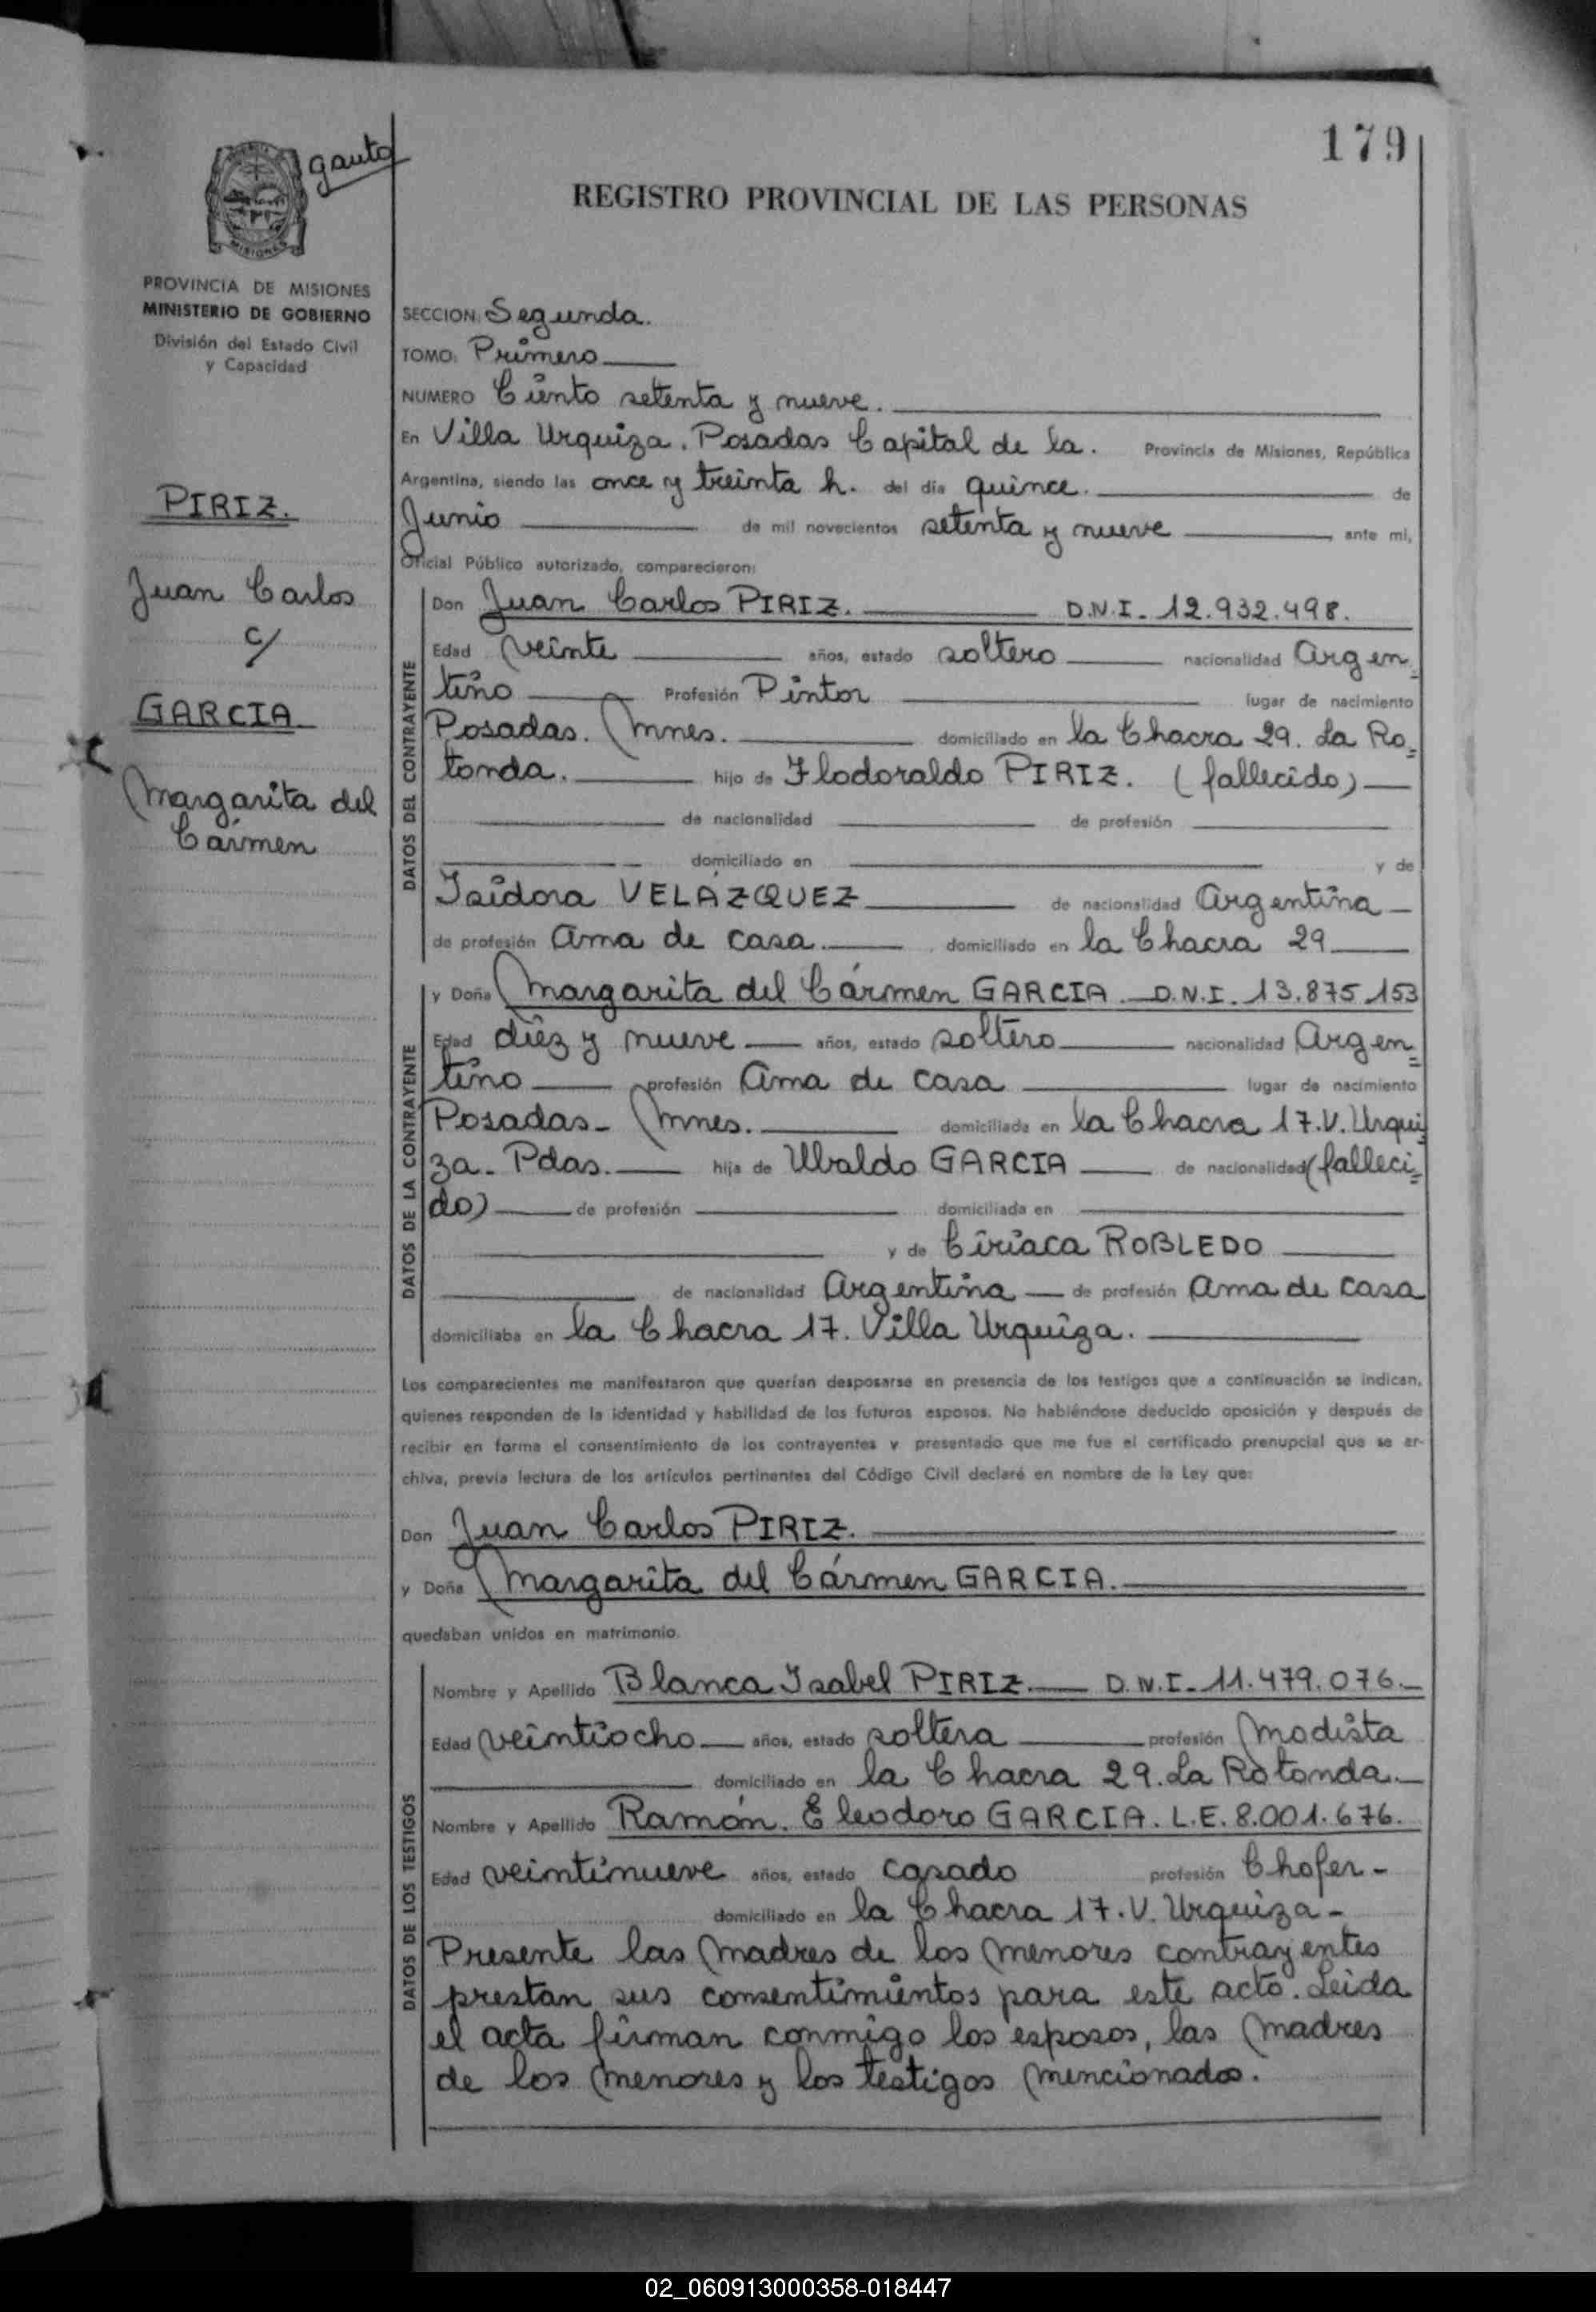 179
gauto
REGISTRO PROVINCIAL DE LAS PERSONAS
MISIONES
PROVINCIA DE MISIONES
MINISTERIO DE GOBIERNO
División del Estado Civil
y Capacidad
PIRIZ.
Juan Carlos
c/
GARCIA
Margarita del
Cármen
SECCION: Segunda.
TOMO: Primero
NUMERO Ciento setenta y nueve.
En Villa Urquiza. Posadas Capital de la. Provincia de Misiones, República
Argentina, siendo las once y treinta h. del día quince. de
Junio de mil novecientos setenta y nueve ante mí,
Oficial Público autorizado, comparecieron:
DATOS DEL CONTRAYENTE
Don Juan Carlos PIRIZ. D.N.I. 12.932.498.
Edad veinte años, estado soltero nacionalidad Argen
tino Profesión Pintor lugar de nacimiento
Posadas. Mnes. domiciliado en la Chacra 29. La Ro
tonda. hijo de Flodoraldo PIRIZ. (fallecido)
de nacionalidad de profesión
domiciliado en y de
Isidora VELÁZQUEZ de nacionalidad Argentina
de profesión Ama de casa. domiciliado en la Chacra 29
DATOS DE LA CONTRAYENTE
y Doña Margarita del Cármen GARCIA. D.N.I. 13.875.153
Edad diez y nueve años, estado soltero nacionalidad Argen
tino profesión Ama de casa lugar de nacimiento
Posadas- Mnes. domiciliada en la Chacra 17. V. Urqui
za- Pdas. hija de Ubaldo GARCIA de nacionalidad (falleci
do) de profesión domiciliada en
y de Ciriaca ROBLEDO
de nacionalidad Argentina de profesión Ama de casa
domiciliaba en la Chacra 17. Villa Urquiza.
Los comparecientes me manifestaron que querían desposarse en presencia de los testigos que a continuación se indican,
quienes responden de la identidad y habilidad de los futuros esposos. No habiéndose deducido oposición y después de
recibir en forma el consentimiento de los contrayentes y presentado que me fue el certificado prenupcial que se ar-
chiva, previa lectura de los artículos pertinentes del Código Civil declaré en nombre de la Ley que:
Don Juan Carlos PIRIZ.
y Doña Margarita del Cármen GARCIA.
quedaban unidos en matrimonio.
DATOS DE LOS TESTIGOS
Nombre y Apellido Blanca Isabel PIRIZ. D.N.I. 11.479.076.
Edad veintiocho años, estado soltera profesión Modista
domiciliado en la Chacra 29. La Rotonda.
Nombre y Apellido Ramón. Eleodoro GARCIA. L.E. 8.001.676.
Edad veintinueve años, estado casado profesión Chofer-
domiciliado en la Chacra 17. V. Urquiza-
Presente las madres de los menores contrayentes
prestan sus consentimientos para este acto. Leida
el acta firman conmigo los esposos, las madres
de los menores y los testigos mencionados.
02_060913000358-018447